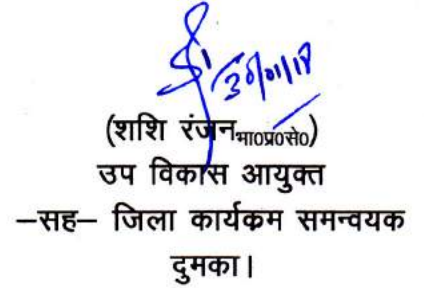 30/01/18
(शशि रंजन भा०प्र०से०)
उप विकास आयुक्त
–सह– जिला कार्यक्रम समन्वयक
दुमका।